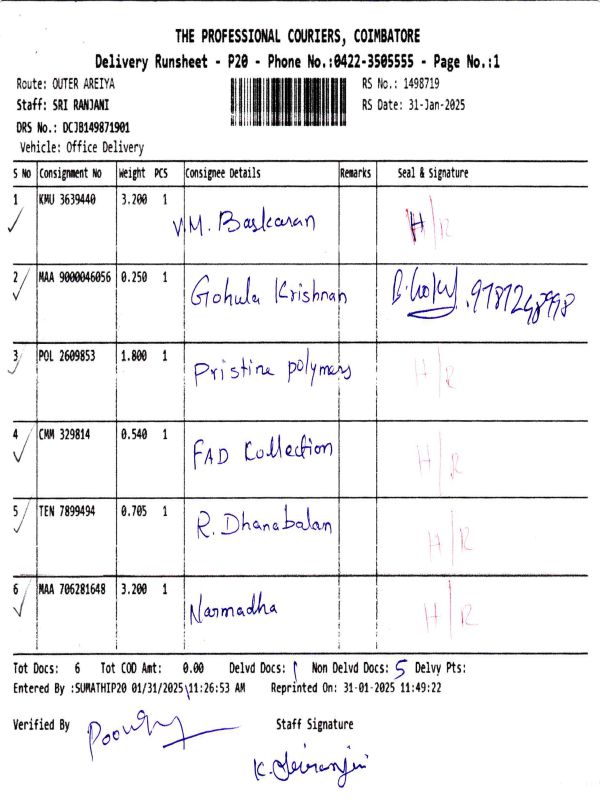 THE PROFESSIONAL COURIERS, COIMBATORE
Delivery Runsheet - P20 - Phone No.:0422-3505555 - Page No.:1
Route: OUTER AREIYA RS No.: 1498719
Staff: SRI RANJANI RS Date: 31-Jan-2025
DRS No.: DCJB149871901
Vehicle: Office Delivery
S No Consignment No Weight PCS Consignee Details Remarks Seal & Signature
1 KMU 3639440 3.200 1 V.M. Baskaran H/R
2 MAA 9000046056 0.250 1 Gohula Krishnan
3 POL 2609853 1.800 1 Pristine polymers H/R
4 CMM 329814 0.540 1 FAD Collection H/R
5 TEN 7899494 0.705 1 R. Dhanabalan H/R
6 MAA 706281648 3.200 1 Narmadha H/R
Tot Docs: 6 Tot COD Amt: 0.00 Delvd Docs: 1 Non Delvd Docs: 5 Delvy Pts:
Entered By :SUMATHIP20 01/31/2025 11:26:53 AM Reprinted On: 31-01-2025 11:49:22
Verified By Staff Signature